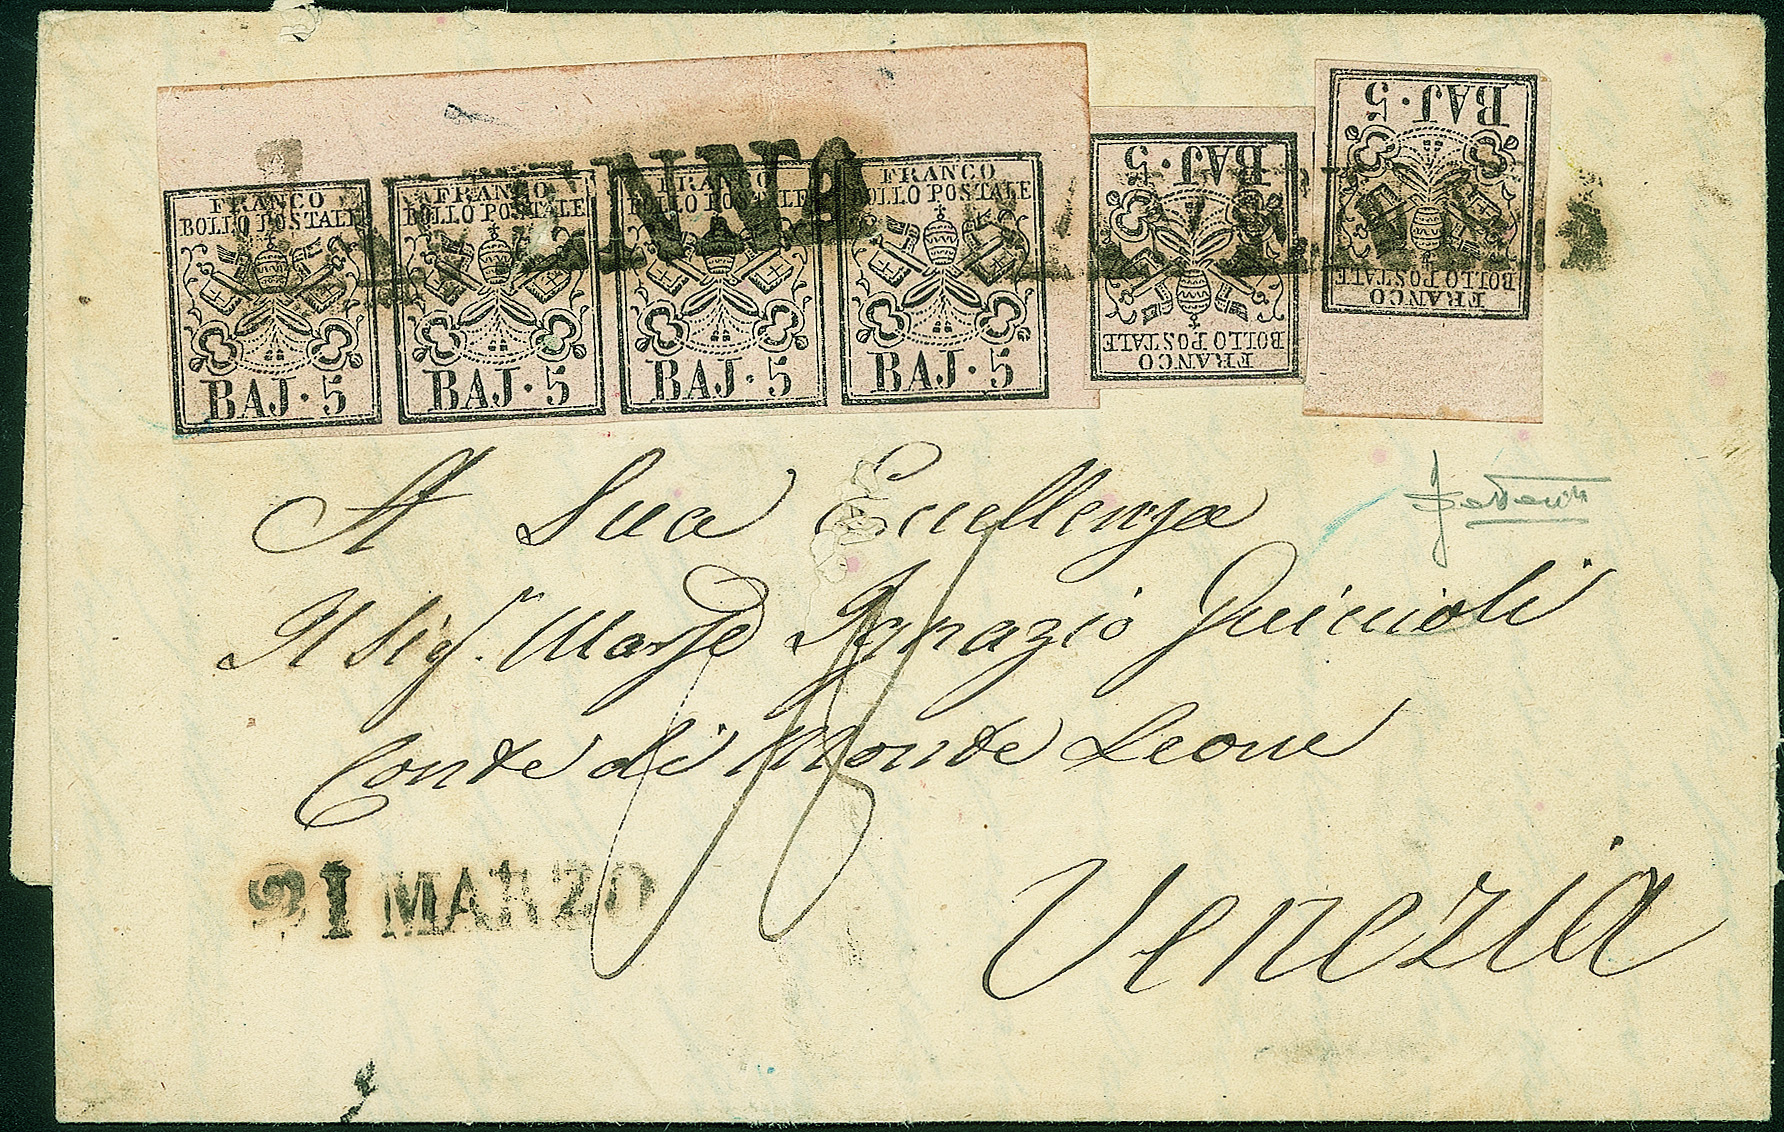 FRANCO
BOLLO POSTALE
BAJ · 5
FRANCO
BOLLO POSTALE
BAJ · 5
FRANCO
BOLLO POSTALE
BAJ · 5
FRANCO
BOLLO POSTALE
BAJ · 5
FRANCO
BOLLO POSTALE
BAJ · 5
FRANCO
BOLLO POSTALE
BAJ · 5
A Sua Eccellenza
Il Sig.r March.e Ignazio Guiccioli
Conte di Monte Leone
Venezia
21 MARZO